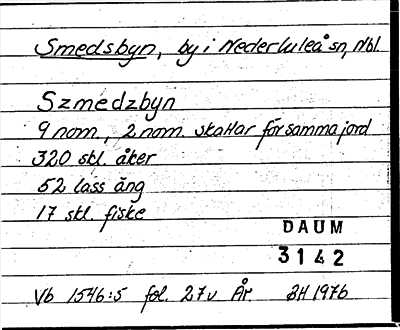 Smedsbyn, by i Nederluleå sn, Nbl.
Szmedzbyn
9 nom., 2 nom. skattar för samma jord
320 skl. åker
52 lass äng
17 skl. fiske
DAUM
3142
Vb 1546:5 fol. 27v År BH 1976